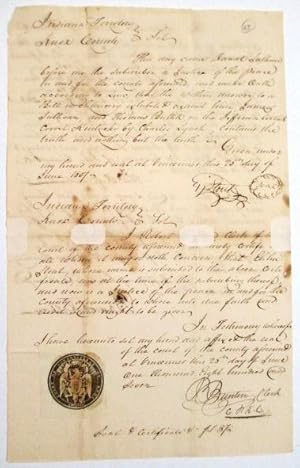 Indiana Territory
Knox County } Sct
This day came Daniel Sullivan
before me the subscriber a Justice of the peace
in and for the county aforesaid, and made oath
according to law that the within answer to a
Bill in Chancery exhibited against him Daniel
Sullivan and Thomas in the Jefferson Circuit
Court Kentucky by Charles Lynch, contains the
truth and nothing but the truth
Given under
my hand and seal at Vincennes this 25th day of
June 1807.
Indiana Territory
Knox County } Sct
I Robert Clerk of
Court of the county aforesaid do hereby certify
all whom it might doth Concern, that
whose name is subscribed to the above Certi
ficate was at the time of the so doing thereof
and now is a Justice of the peace in and for the
County aforesaid to whose acts due faith and
credit is and ought to be given
In Testimony whereof
I have hereunto set my hand and affixed the seal
of the court of the county aforesaid
at Vincennes this 25th day of June
one thousand Eight hundred and
Seven
R Buntin Clerk
C. K. C.
Seal & Certificate